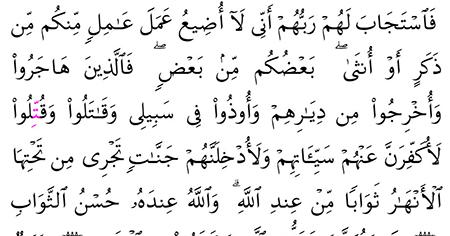 فَٱسْتَجَابَ لَهُمْ رَبُّهُمْ أَنِّى لَآ أُضِيعُ عَمَلَ عَـٰمِلٍ مِّنكُم مِّن
ذَكَرٍ أَوْ أُنثَىٰ ۖ بَعْضُكُم مِّنۢ بَعْضٍ ۖ فَٱلَّذِينَ هَاجَرُوا۟
وَأُخْرِجُوا۟ مِن دِيَـٰرِهِمْ وَأُوذُوا۟ فِى سَبِيلِى وَقَـٰتَلُوا۟ وَقُتِّلُوا۟
لَأُكَفِّرَنَّ عَنْهُمْ سَيِّـَٔاتِهِمْ وَلَأُدْخِلَنَّهُمْ جَنَّـٰتٍ تَجْرِى مِن تَحْتِهَا
ٱلْأَنْهَـٰرُ ثَوَابًا مِّنْ عِندِ ٱللَّهِ ۗ وَٱللَّهُ عِندَهُۥ حُسْنُ ٱلثَّوَابِ